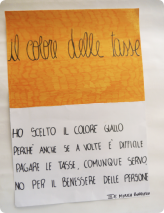 il colore delle tasse
HO SCELTO IL COLORE GIALLO
PERCHÉ ANCHE SE A VOLTE È DIFFICILE
PAGARE LE TASSE, COMUNQUE SERVO
NO PER IL BENESSERE DELLE PERSONE